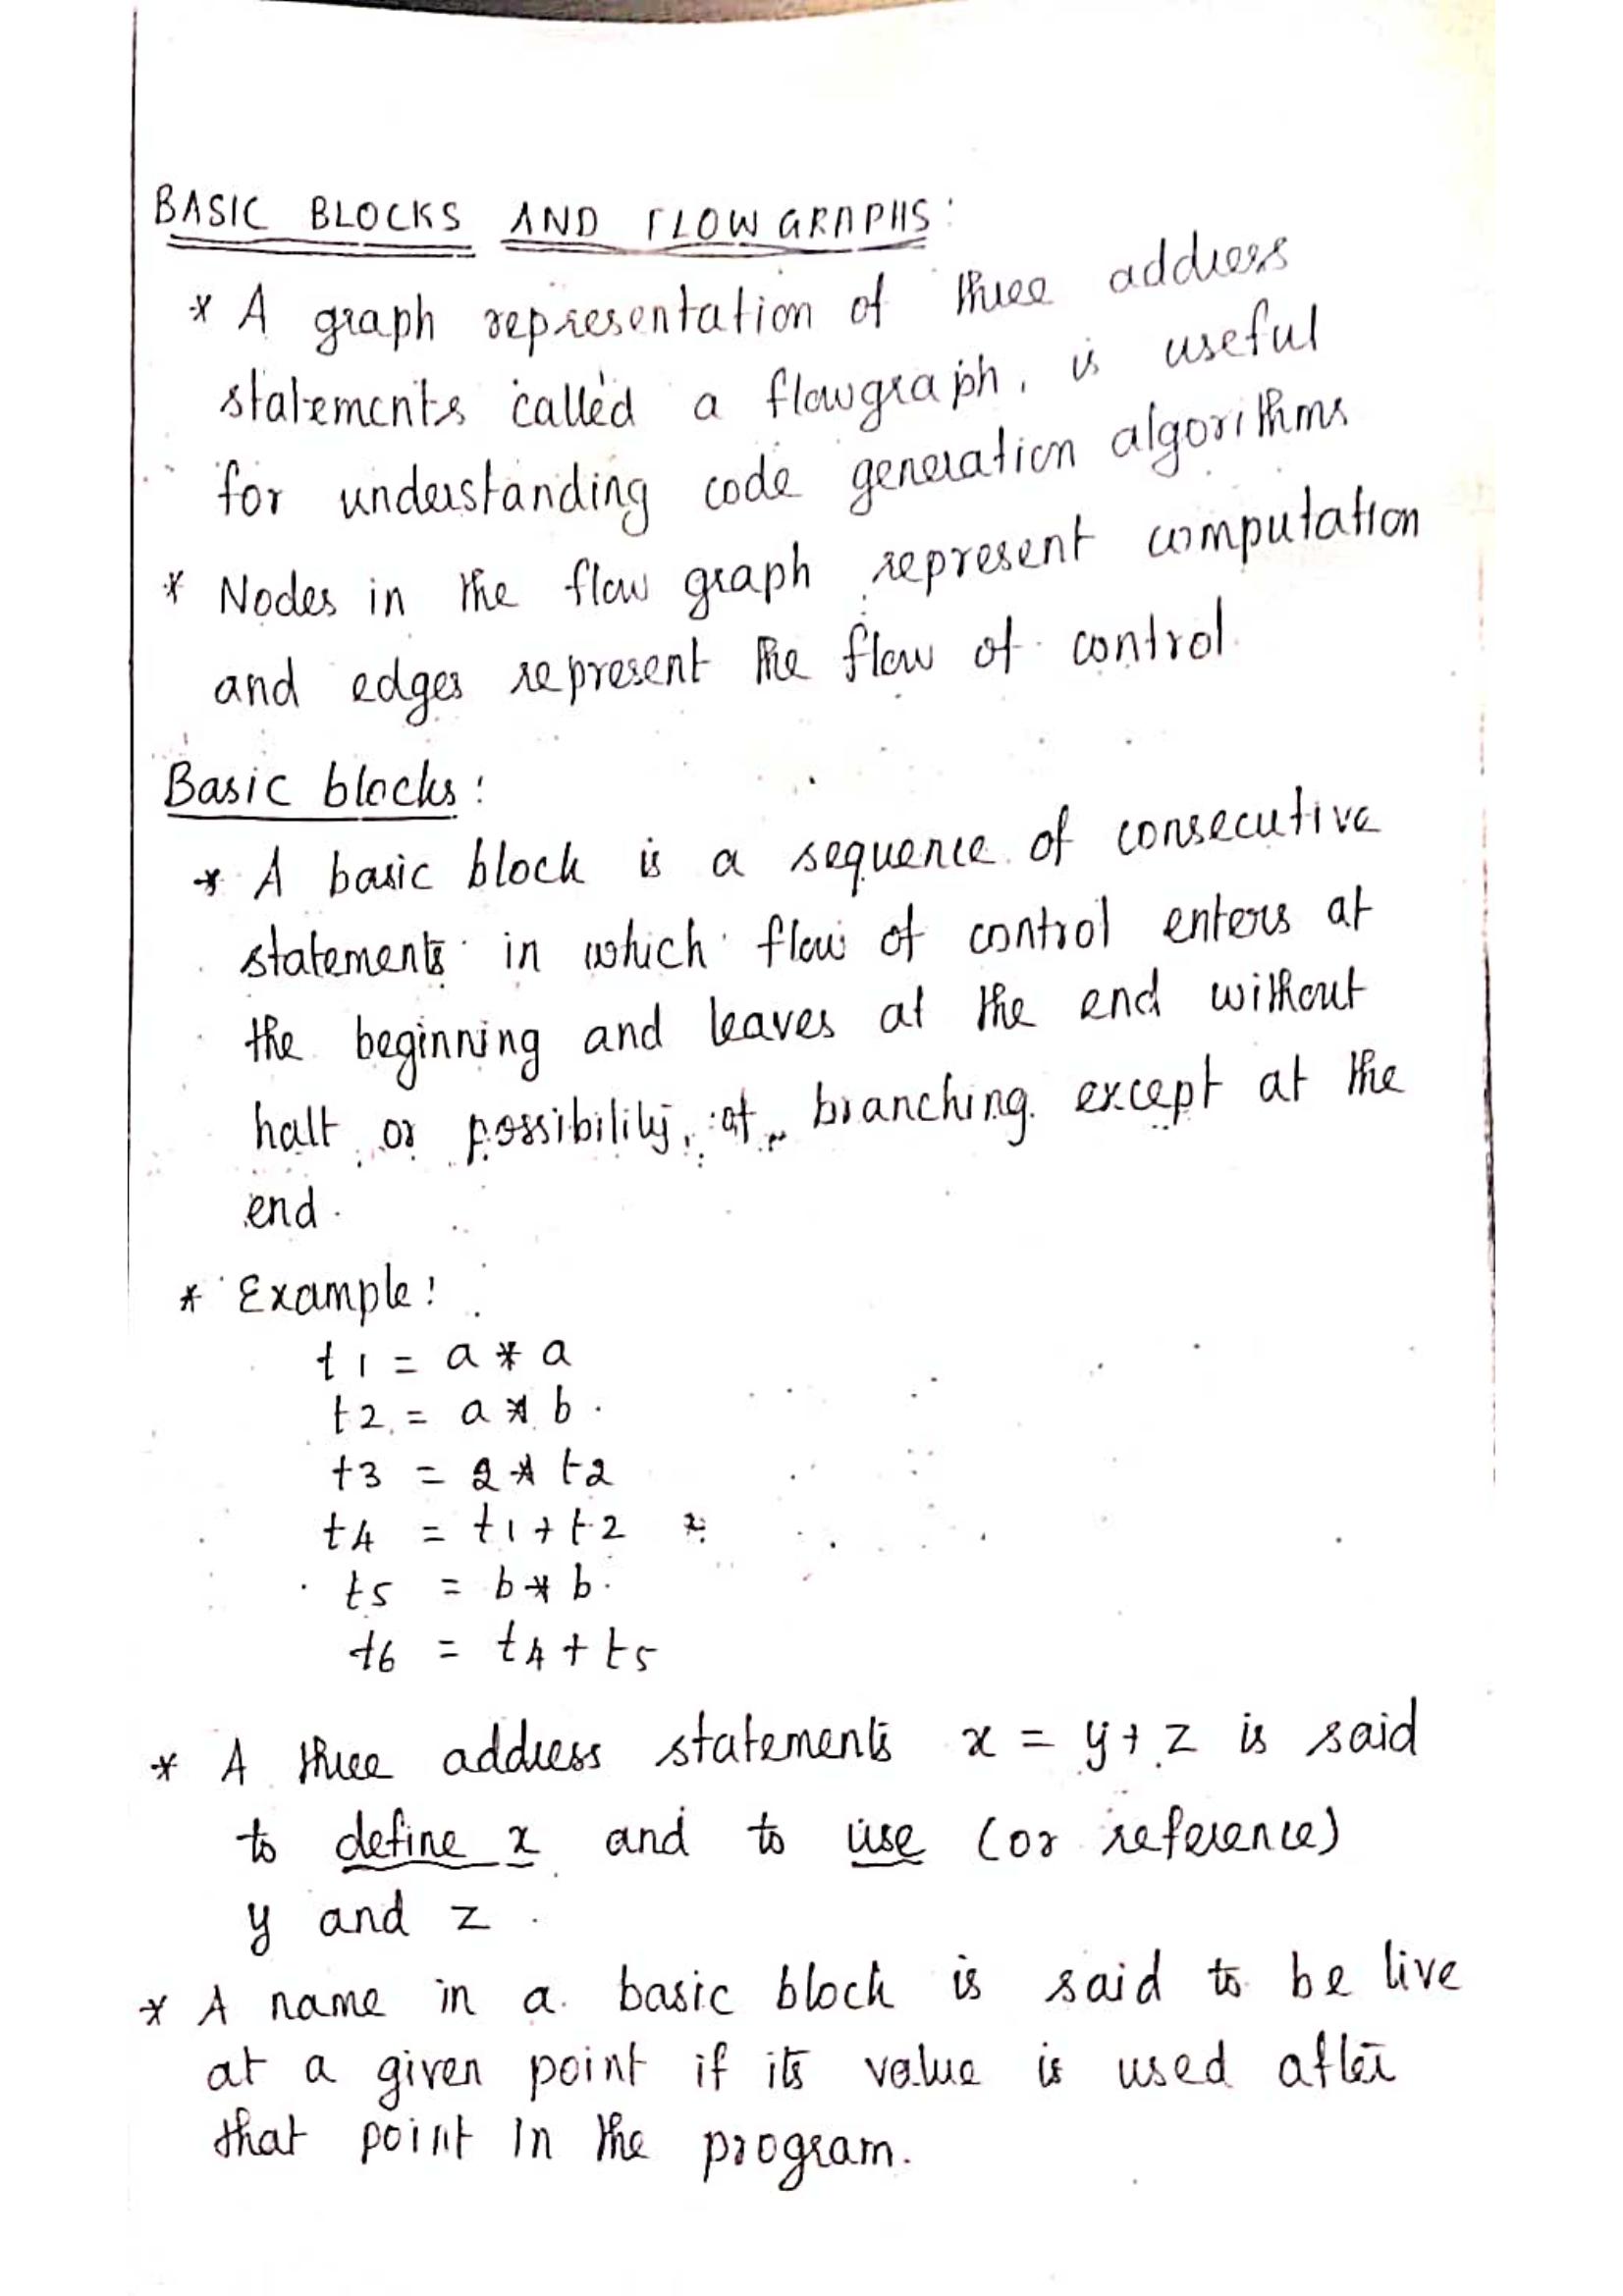 BASIC BLOCKS AND FLOW GRAPHS:
* A graph representation of three address
statements called a flowgraph, is useful
for understanding code generation algorithms
* Nodes in the flow graph represent computation
and edges represent the flow of control.
Basic blocks:
* A basic block is a sequence of consecutive
statements in which flow of control enters at
the beginning and leaves at the end without
halt or possibility of branching except at the
end.
* Example:
t1 = a * a
t2 = a * b
t3 = 2 * t2
t4 = t1 + t2
t5 = b * b
t6 = t4 + t5
* A three address statements x = y + z is said
to define x and to use (or reference)
y and z.
* A name in a basic block is said to be live
at a given point if its value is used after
that point in the program.